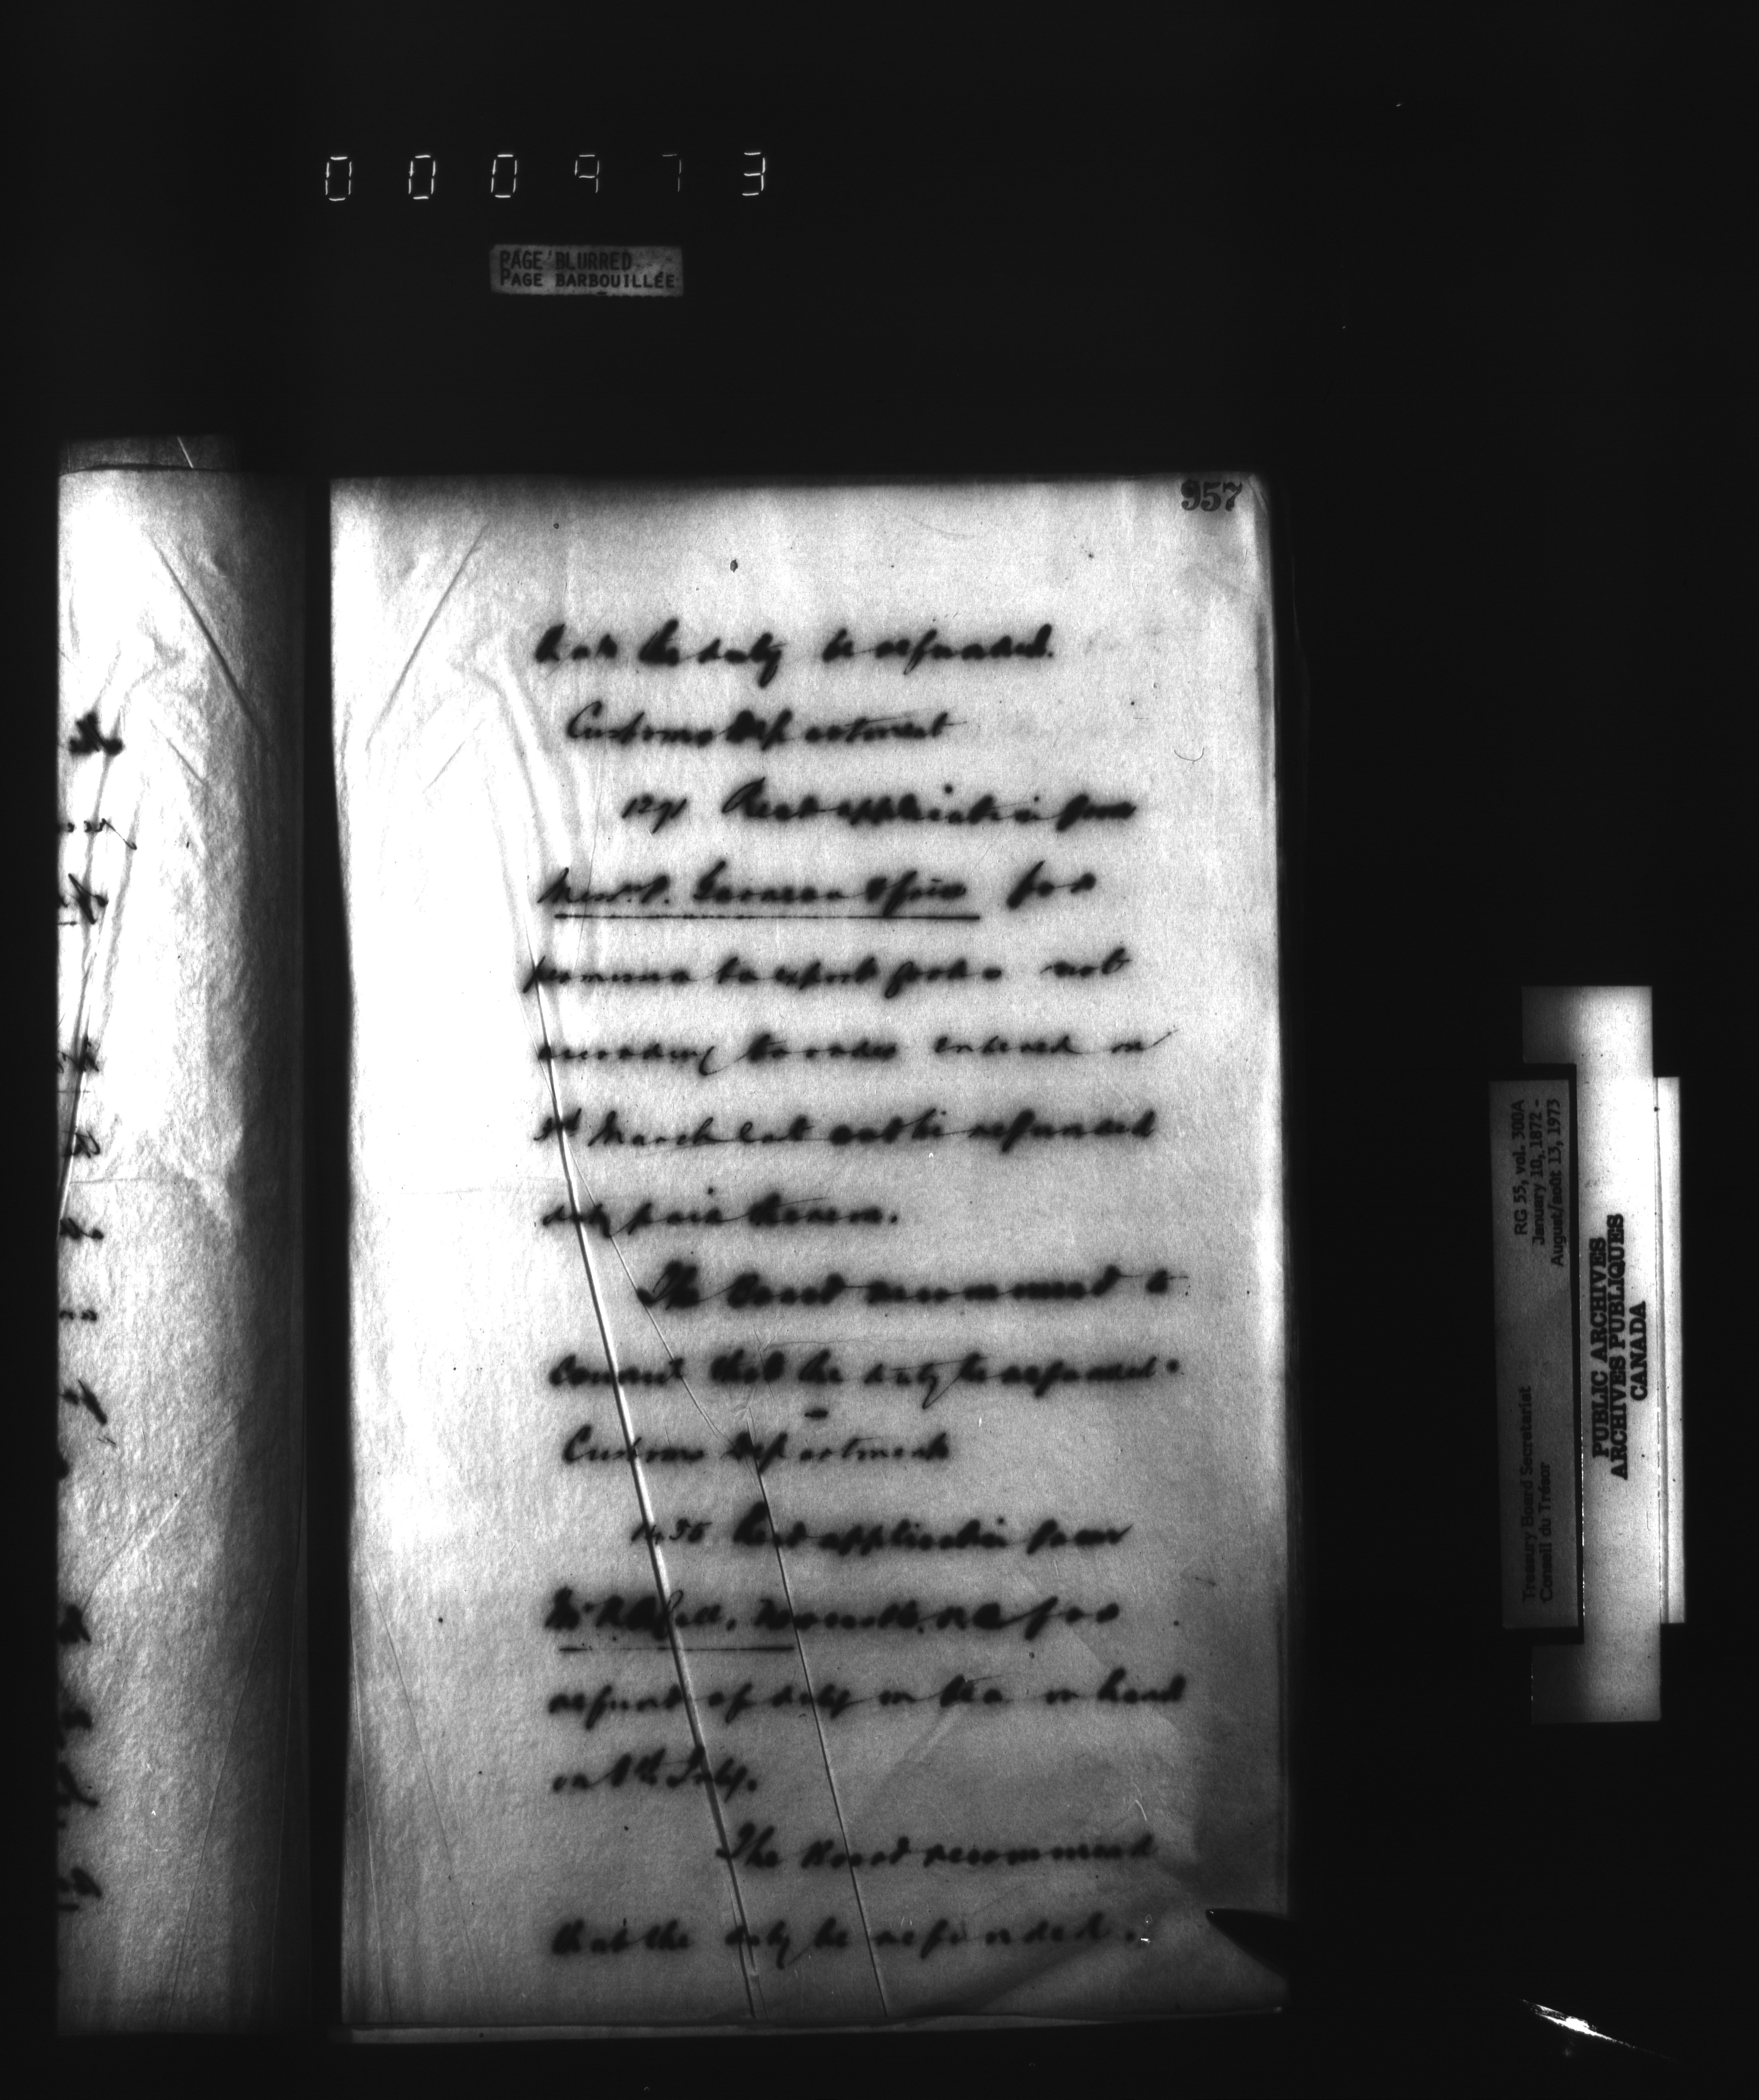 000973
PAGE BLURRED
PAGE BARBOUILLÉE
957
that the duty be refunded.
Customs Department
1291 Read application from
Messrs. P. & frère for
permission to export goods not
according to order entered on
3rd March last and be refunded
duty paid thereon.
The Board recommend to
Council that the duty be refunded.
Customs Department
1435 Read application from
Mr for
refund of duty on tea on hand
on 1st July.
The Board recommend
that the duty be refunded.
RG 55, vol. 300A
January 10, 1872 -
August/août 13, 1973
Treasury Board Secretariat
Conseil du Trésor
PUBLIC ARCHIVES
ARCHIVES PUBLIQUES
CANADA